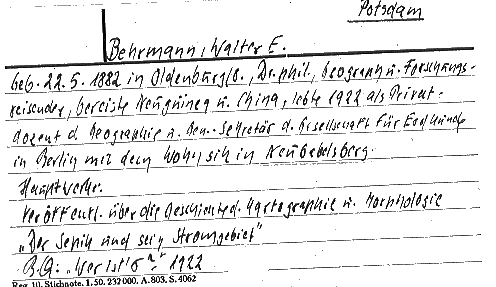 Potsdam
Behrmann, Walter E.
geb. 22.5.1882 in Oldenburg/O., Dr. phil., Geograph u. Forschungs-
reisender, bereiste Neuguinea u. China, lebte 1922 als Privat-
dozent d. Geographie u. Gen. Sekretär d. Gesellschaft für Erdkunde
in Berlin mit dem Wohnsitz in Neubabelsberg.
Hauptwerke:
Veröffentl. über die Geschichte d. Kartographie u. Morphologie
„Der Sepik und sein Stromgebiet"
B.Q: „Wer ist's" 1922
Reg. 10. Stichnote. 1. 50. 232000. A. 803. S. 4062